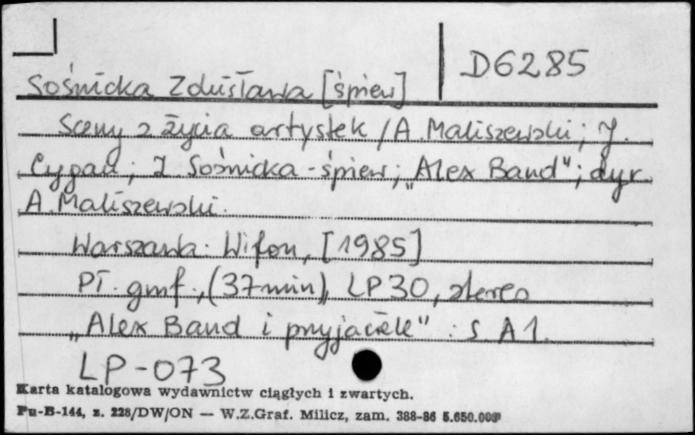 D6285
Sośnicka Zdzisława [śpiew]
Sceny z życia artystek / A. Maliszewski; J.
Cygan; Z. Sośnicka - śpiew; „Alex Band"; dyr.
A. Maliszewski.
Warszawa: Wifon, [1985]
Pł. gmf., (37 min), LP 30, stereo
„Alex Band i przyjaciele" : s. A1.
LP-073
Karta katalogowa wydawnictw ciągłych i zwartych.
Pu-B-144, z. 228/DW/ON — W.Z.Graf. Milicz, zam. 388-86 5.650.000